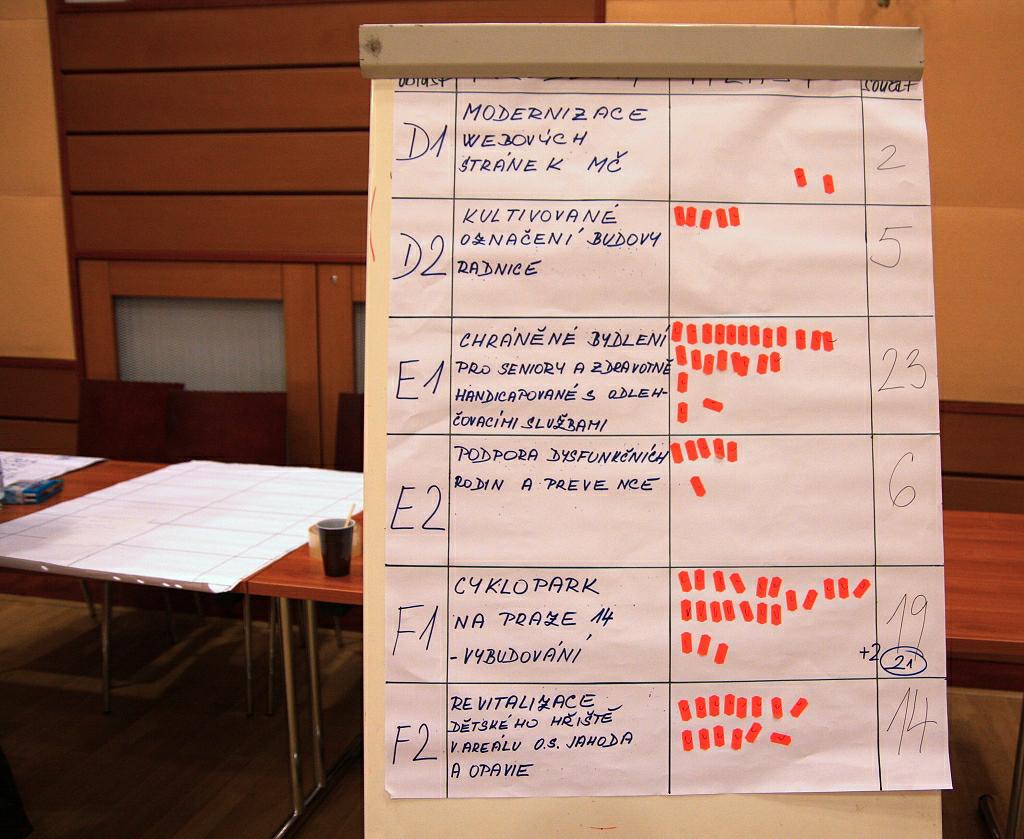 součet
D1
MODERNIZACE
WEBOVÝCH
STRÁNEK MČ
2
D2
KULTIVOVANÉ
OZNAČENÍ BUDOVY
RADNICE
5
E1
CHRÁNĚNÉ BYDLENÍ
PRO SENIORY A ZDRAVOTNĚ
HANDICAPOVANÉ S ODLEH-
ČOVACÍMI SLUŽBAMI
23
E2
PODPORA DYSFUNKČNÍCH
RODIN A PREVENCE
6
F1
CYKLOPARK
NA PRAZE 14
-VYBUDOVÁNÍ
19
+2
21
F2
REVITALIZACE
DĚTSKÉHO HŘIŠTĚ
V AREÁLU O.S. JAHODA
A OPAVIE
14